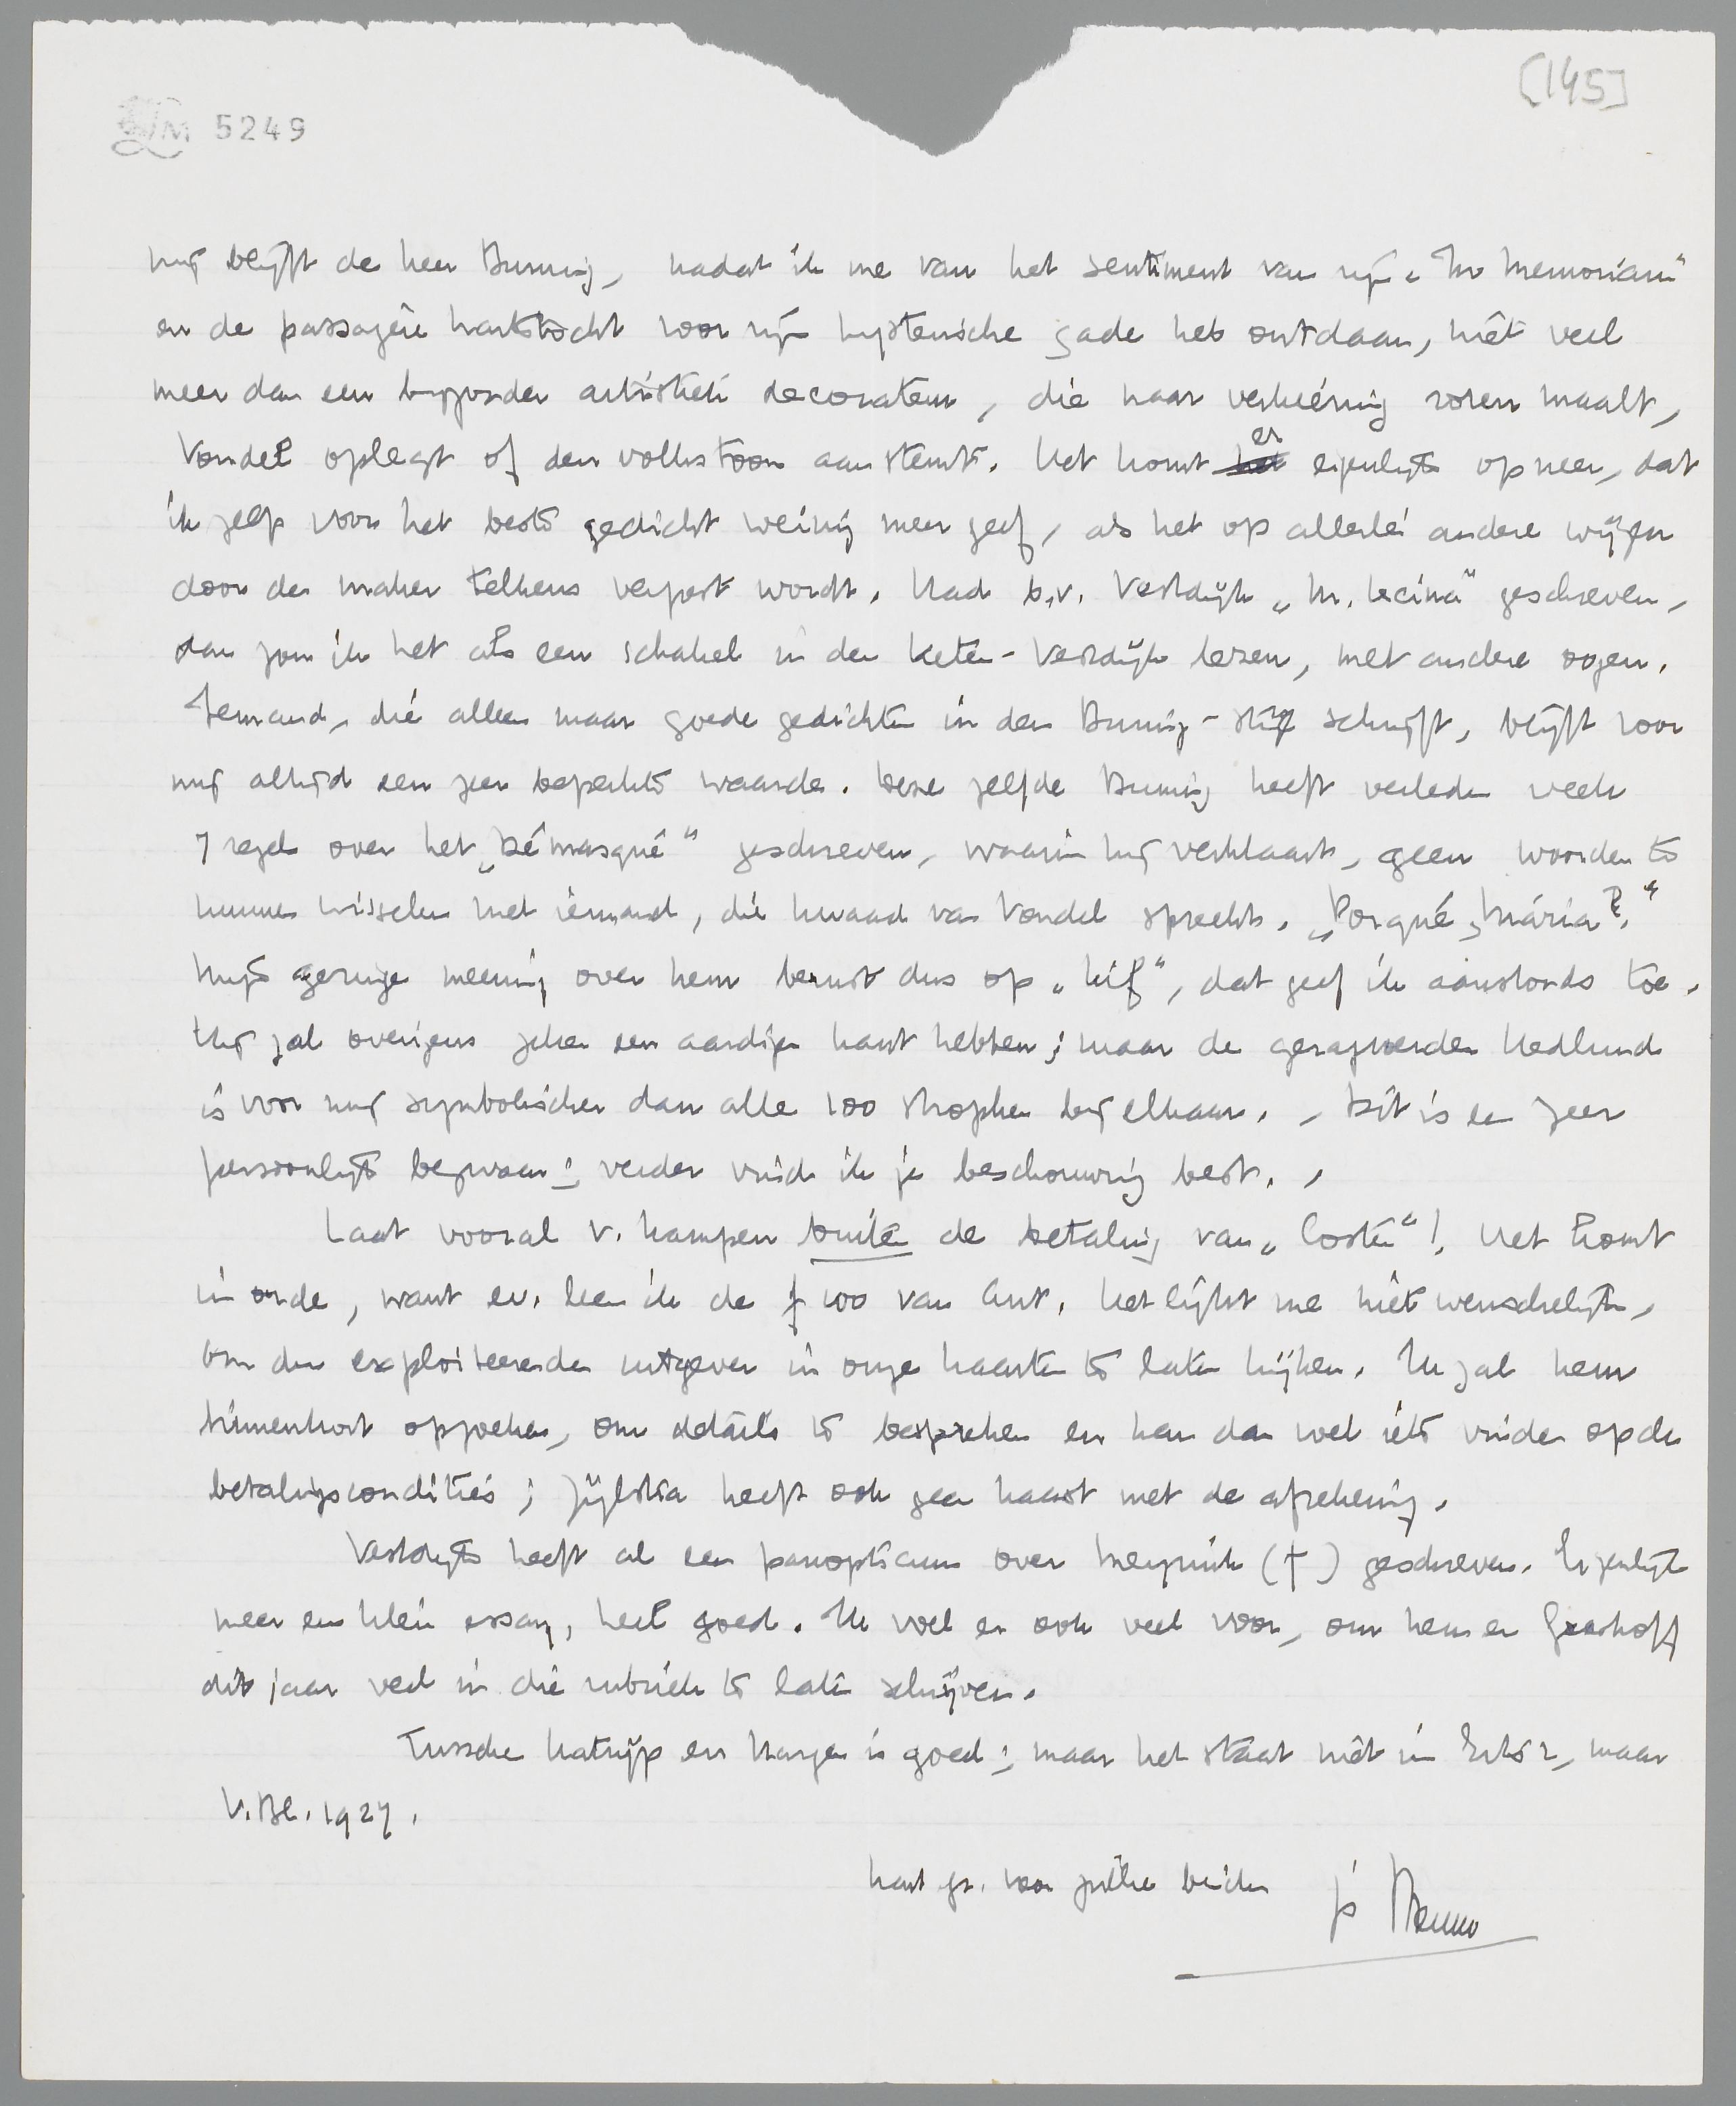 [145]
LM 5249
mij blijft de heer Buning, nadat ik me van het sentiment van zijn „In Memoriam"
en de passagère hartstocht voor zijn hysterische gade heb ontdaan, niet veel
meer dan een bijzonder artistiek decorateur, die naar verkiezing rozen maalt,
Vondel oplegt of den volkstoon aanstemt. Het komt er eigenlijk op neer, dat
ik zelfs voor het beste gedicht weinig meer geef, als het op allerlei andere wijzen
door den maker telkens verpest wordt. Had b.v. Vestdijk „M. Lecina" geschreven,
dan zou ik het als een schakel in den keten-Vestdijk lezen, met andere oogen.
Iemand, die alleen maar goede gedichten in den Buning-stijl schrijft, blijft voor
mij altijd een zeer beperkte waarde. Deze zelfde Buning heeft verleden week
7 regels over het „Démasqué" geschreven, waarin hij verklaart, geen woorden te
kunnen wisselen met iemand, die kwaad van Vondel spreekt. „Porqué, Mária?"
Mijn geringe meening over hem berust dus op „kif", dat geef ik aanstonds toe.
Hij zal overigens zeker een aardigen kant hebben; maar de
is voor mij symbolischer dan alle 100 strophen bij elkaar. - Dit is een zeer
persoonlijk bezwaar; verder vind ik je beschouwing best. -
Laat vooral v. Kampen buiten de betaling van „Coster"! Het komt
in orde, want ev. leen ik de f 100 van Ant. Het lijkt me niet wenschelijk,
om den exploiteerenden uitgever in onze kaarten te laten kijken. Ik zal hem
binnenkort opzoeken, om details te bespreken en kan dan wel iets vinden op de
betalingscondities; Zijlstra heeft ook geen haast met de afrekening.
Vestdijk heeft al een panopticum over Meyrink (†) geschreven. Eigenlijk
meer een klein essay, heel goed. Ik voel er ook veel voor, om hem en Greshoff
dit jaar veel in die rubriek te laten schrijven.
Tusschen Katwijk en Bergen is goed; maar het staat niet in Erts 2, maar
V.Bl. 1927.
hart gr. voor jullie beiden je Menno